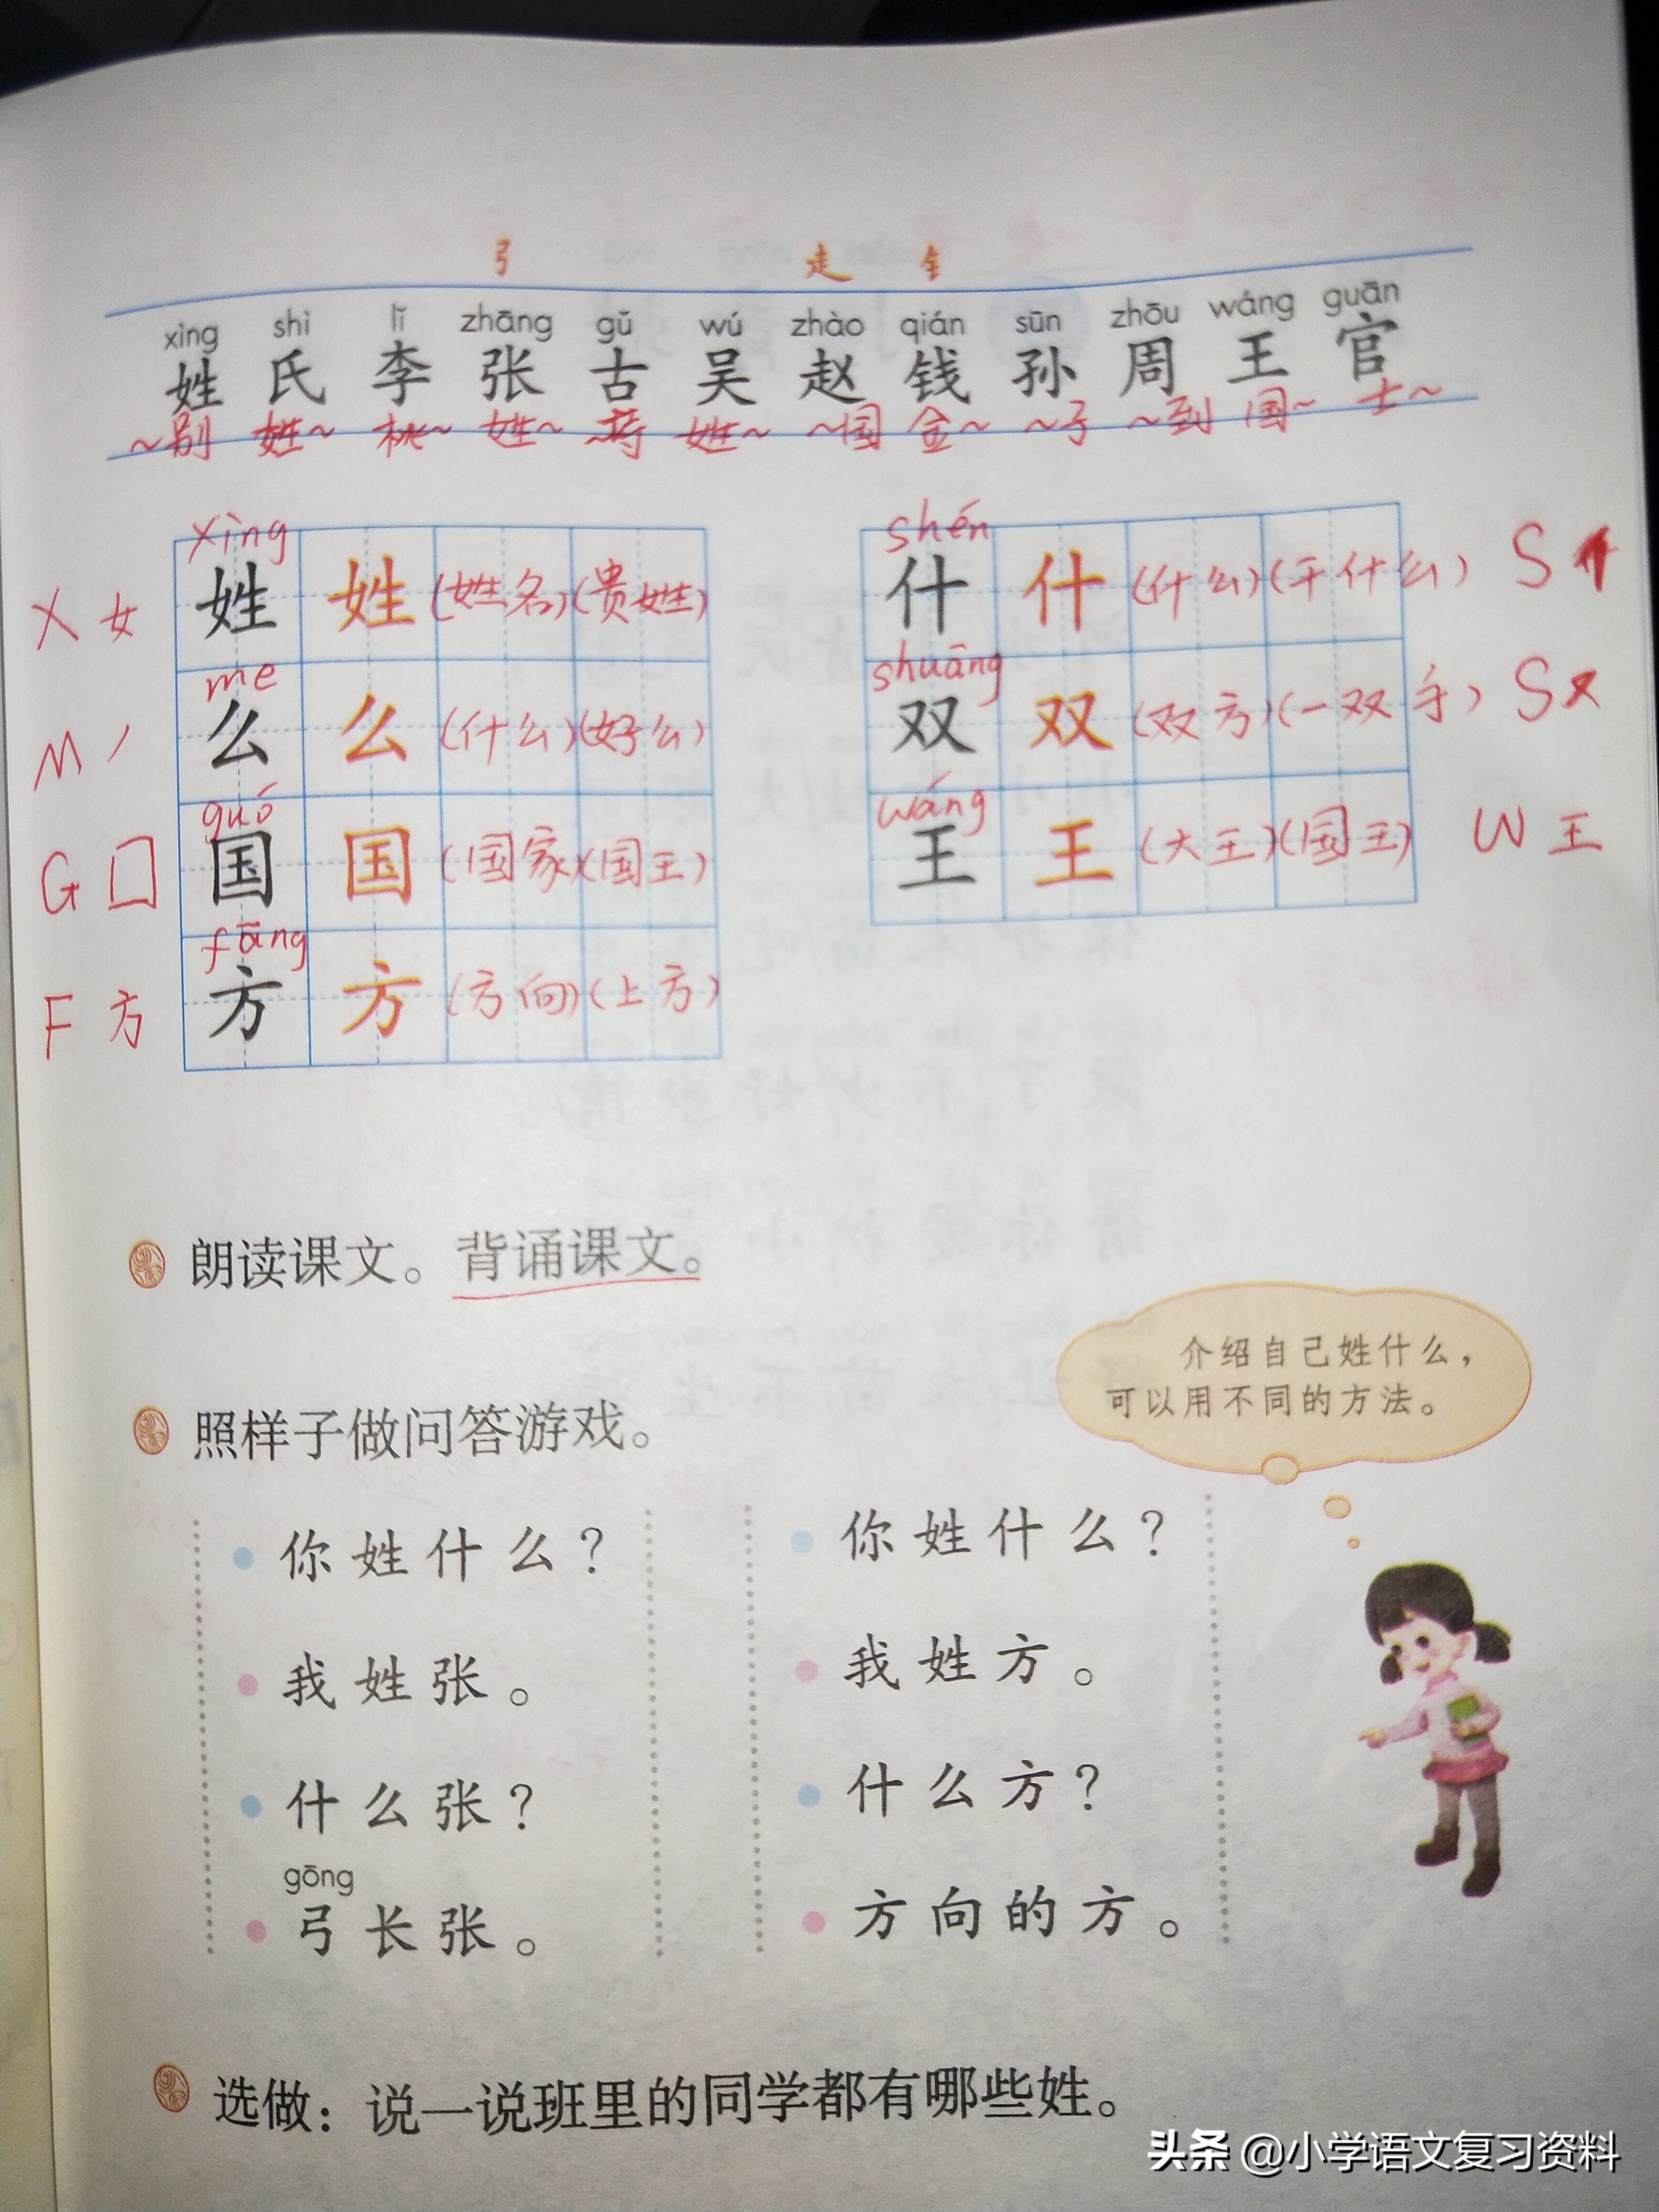 弓 走 钅
xìng shì lǐ zhāng gǔ wú zhào qián sūn zhōu wáng guān
姓 氏 李 张 古 吴 赵 钱 孙 周 王 官
~别 姓~ 桃~ 姓~ 姓~ ~国 金~ ~子 ~到 国~ 士~
xìng
X 女 姓 姓 (姓名)(贵姓)
me
M 丿 么 么 (什么)(好么)
guó
G 囗 国 国 (国家)(国王)
fāng
F 方 方 方 (方向)(上方)
shén
什 什 (什么)(干什么) S 亻
shuāng
双 双 (双方)(一双手) S 又
wáng
王 王 (大王)(国王) W 王
朗读课文。背诵课文。
照样子做问答游戏。
介绍自己姓什么，
可以用不同的方法。
你姓什么？
我姓张。
什么张？
gōng
弓长张。
你姓什么？
我姓方。
什么方？
方向的方。
选做：说一说班里的同学都有哪些姓。
头条 @小学语文复习资料